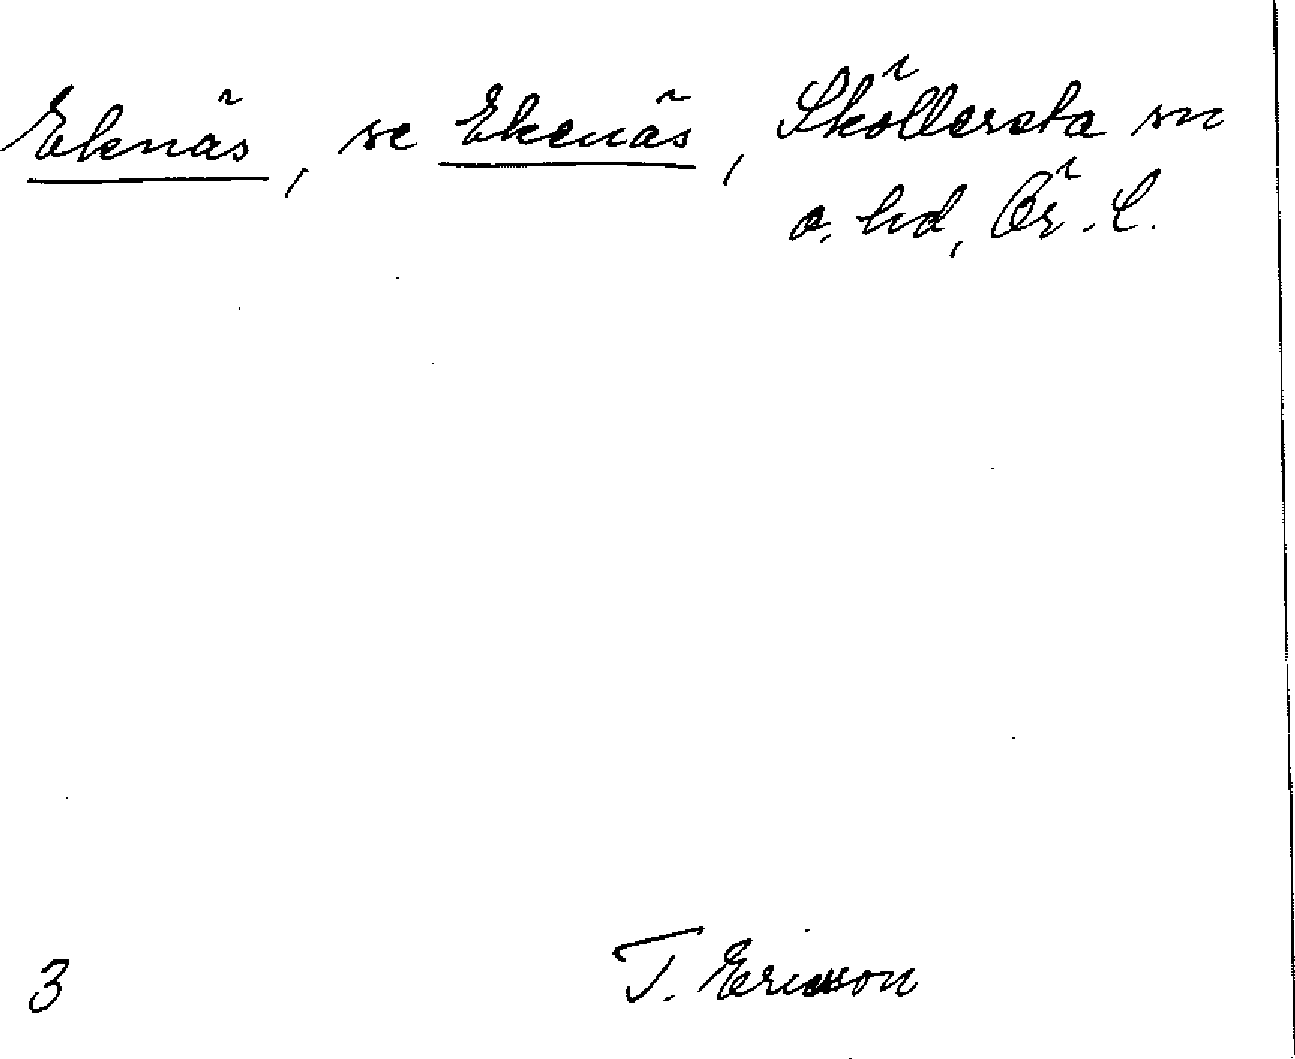 Eknäs, se Ekenäs, Sköllersta sn
o. hd, Ör. L.
3
T. Ericsson